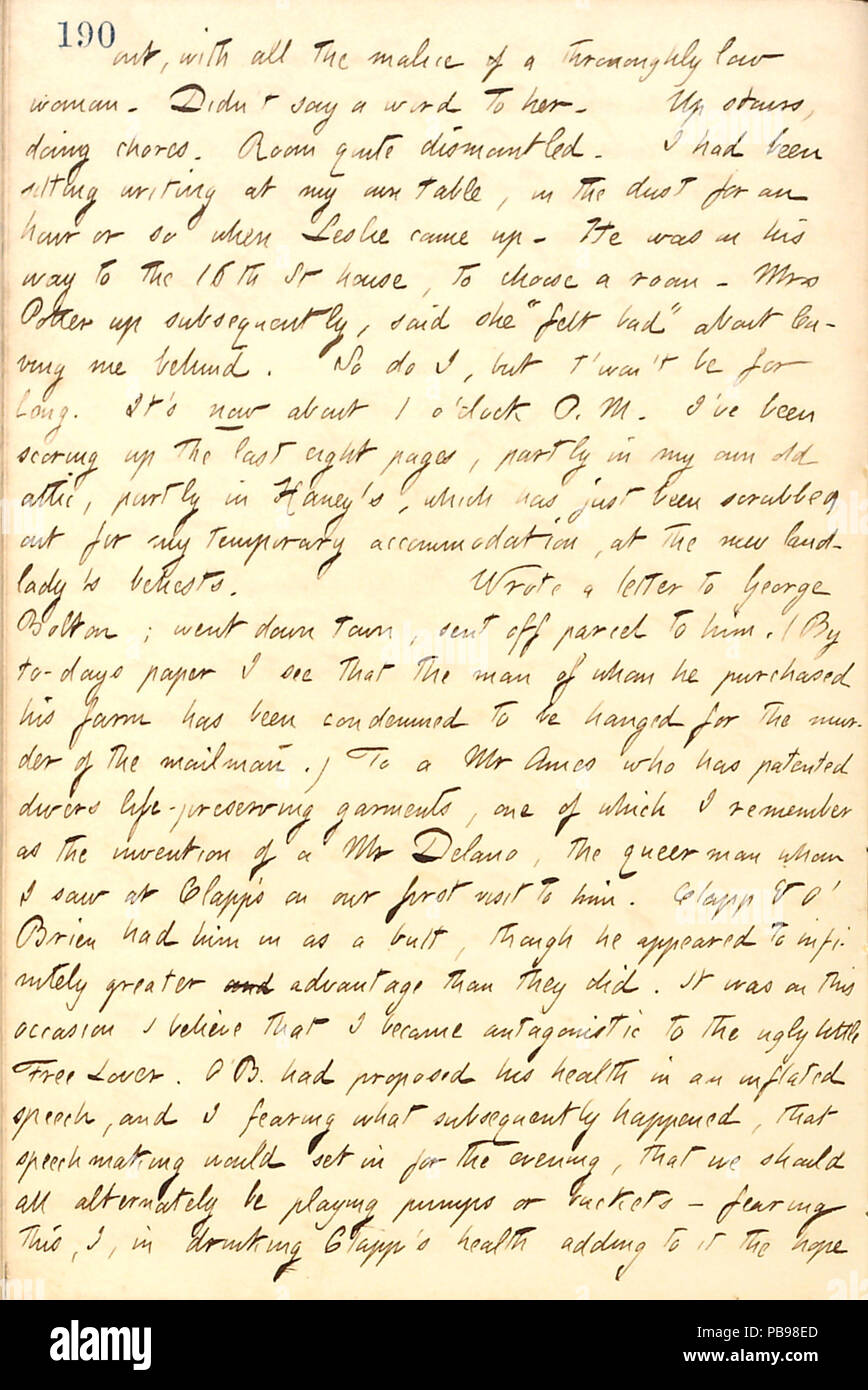 190
out, with all the malice of a thoroughly low
woman. Didn't say a word to her. Up stairs,
doing chores. Room quite dismantled. I had been
sitting writing at my own table, in the dust for an
hour or so when Leslie came up. He was on his
way to the 16th St house, to choose a room. Mrs
Potter up subsequently, said she "felt bad" about lea-
ving me behind. So do I, but t'won't be for
long. It's now about 1 o'clock P. M. I've been
scoring up the last eight pages, partly in my own old
attic, partly in Haney's, which has just been scrubbed
out for my temporary accommodation, at the new land-
lady's behests. Wrote a letter to George
Bolton; went down town, sent off parcel to him. (By
to-days paper I see that the man of whom he purchased
his farm has been condemned to be hanged for the mur-
der of the mailman.) To a Mr Ames who has patented
divers life-preserving garments, one of which I remember
as the invention of a Mr Delano, the queer man whom
I saw at Clapp's on our first visit to him. Clapp & O'
Brien had him in as a butt, though he appeared to infi-
nitely greater and advantage than they did. It was on this
occasion I believe that I became antagonistic to the ugly little
Free Lover. O'B. had proposed his health in an inflated
speech, and I fearing what subsequently happened, that
speechmaking would set in for the evening, that we should
all alternately be playing pumps or buckets - fearing
this, I, in drinking Clapp's health adding to it the hope
alamy
Image ID: PB98ED
www.alamy.com